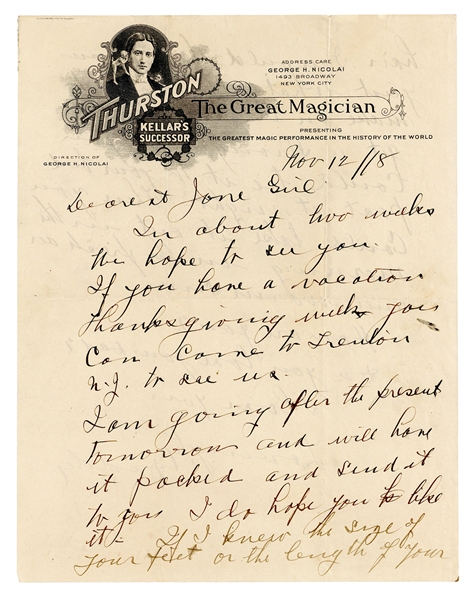 THURSTON
KELLAR'S
SUCCESSOR
ADDRESS CARE
GEORGE H. NICOLAI
1493 BROADWAY
NEW YORK CITY
The Great Magician
PRESENTING
THE GREATEST MAGIC PERFORMANCE IN THE HISTORY OF THE WORLD
DIRECTION OF
GEORGE H. NICOLAI
Nov 12/18
Dearest Jane Girl
In about two weeks
We hope to see you.
If you have a vacation
thanksgiving week you
Can Come to Trenton
N.J. to see us.
I am going after the present
tomorrow and will have
it packed and send it
to you I do hope you like
it- If I knew the size of
your feet or the length of your